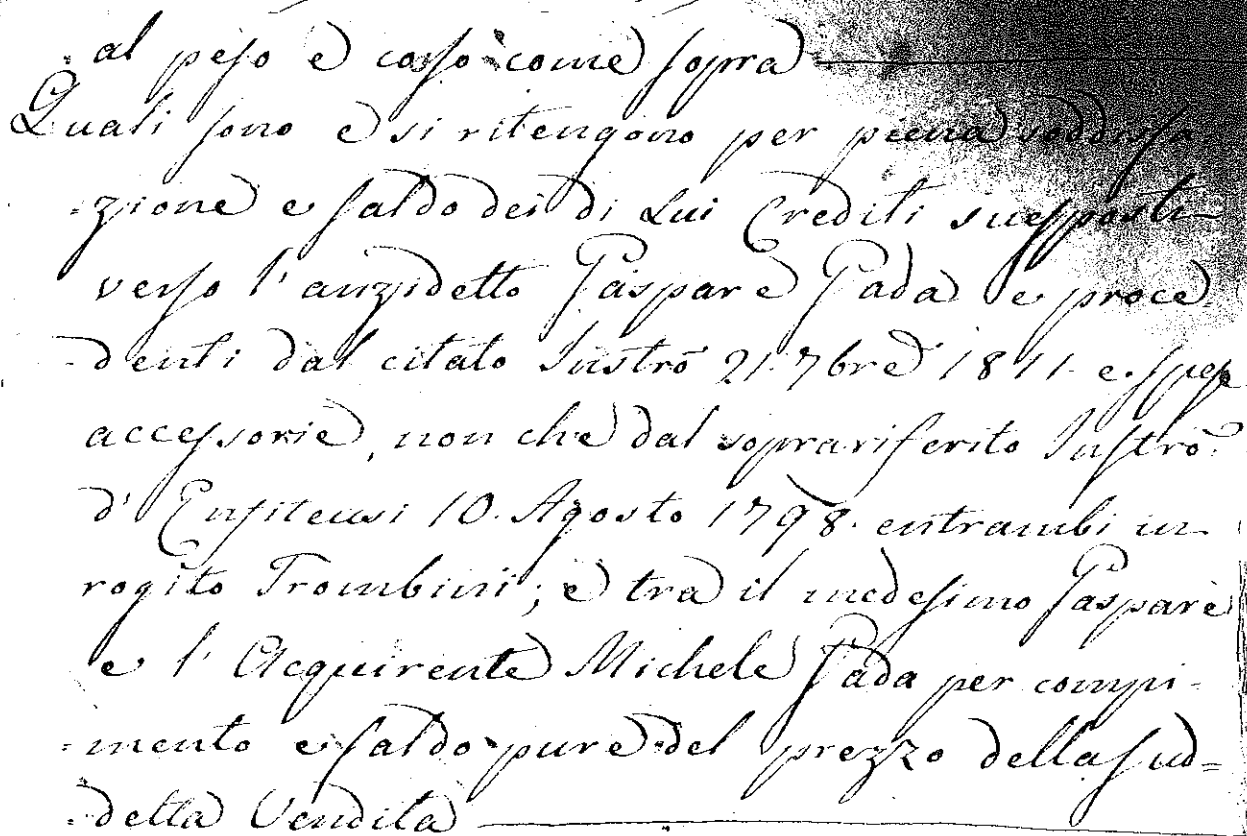 :al peso e corso come sopra
Quali sono e si ritengono per piena soddisfa
-zione e saldo dei di Lui Crediti suesposti
verso l'anzidetto Gaspare Gada e proce
-denti dal citato Instrõ 21. 7bre 1811. e spese
accessorie, non che dal soprariferito Instrõ
d'Enfiteusi 10. Agosto 1798. entrambi in
rogito Trombini; e tra il medesimo Gaspare
e l'Acquirente Michele Gada per compi-
=mento e saldo pure del prezzo della sud=
:detta Vendita